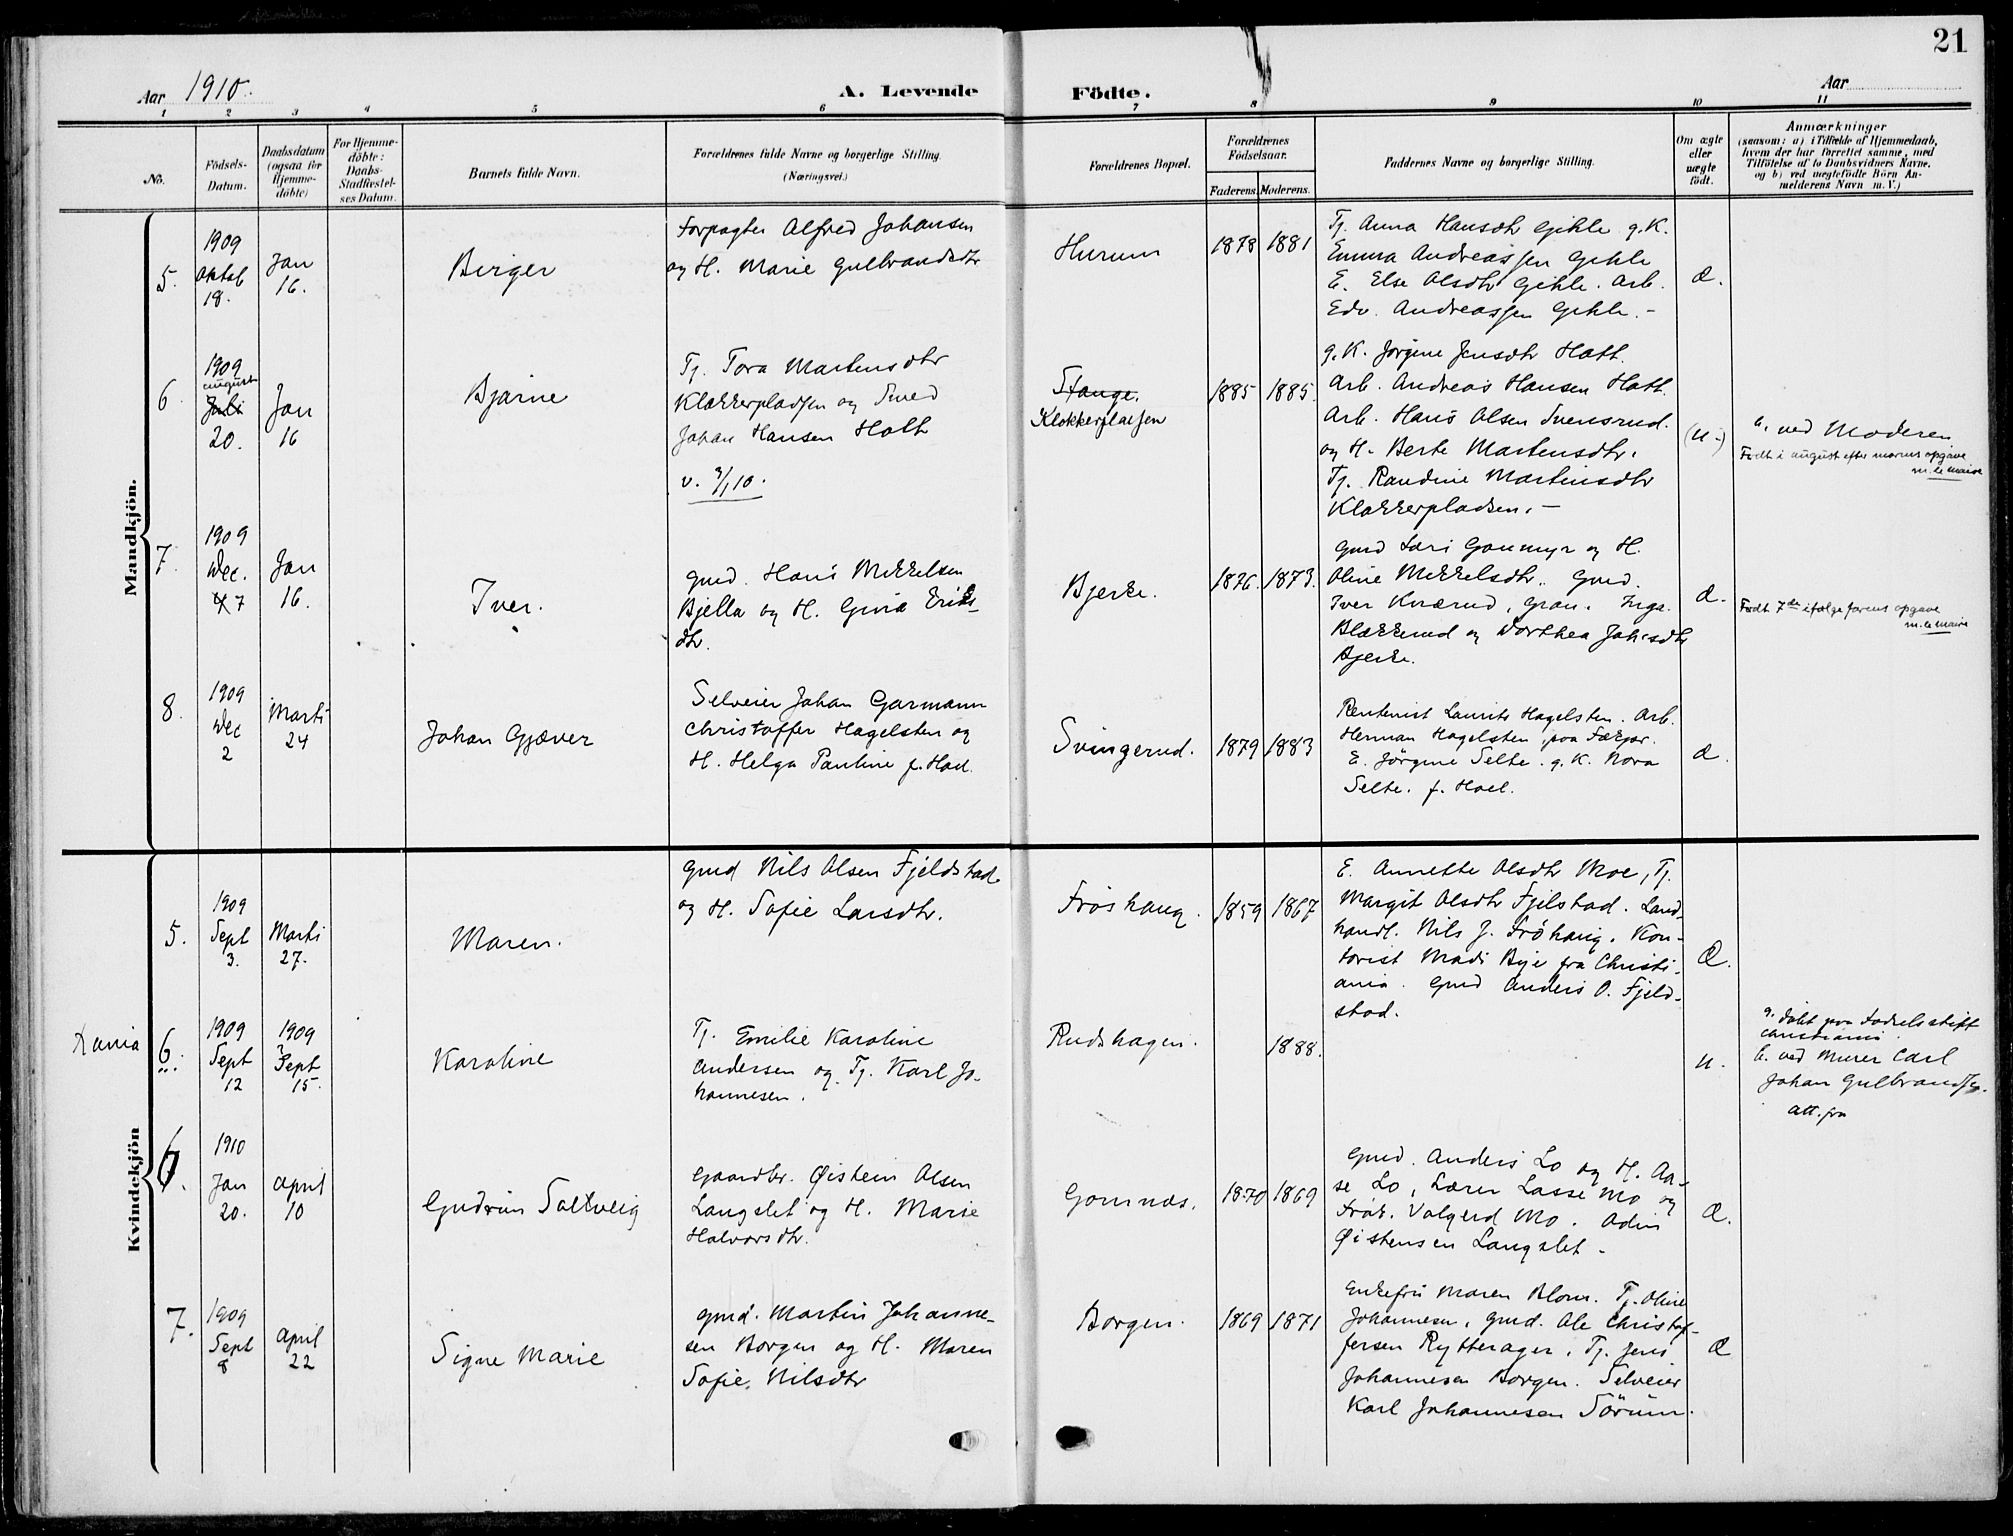 21
Aar 1910.
A. Levende Födte.
Aar
1 2 3 4 5 6 7 8 9 10 11
No.
Födsels-
Datum.
Daabsdatum
(ogsaa för
Hjemme-
döbte)
For Hjemme-
döbte:
Daabs-
Stadfæstel-
ses Datum.
Barnets fulde Navn.
Forældrenes fulde Navne og borgerlige Stilling.
(Næringsvei.)
Forældrenes Bopæl.
Forældrenes
Födselsaar.
Faderens. Moderens.
Faddernes Navne og borgerlige Stilling.
Om ægte
eller
uægte
födt.
Anmærkninger
(saasom: a) i Tilfælde af Hjemmedaab,
hvem der har forrettet samme, med
Tilföielse af to Daabsvidners Navne,
og b) ved uægtefödte Börn An-
melderens Navn m. V.)
Mandkjön.
5.
1909
Oktob
18.
Jan
16.
Birger
Forpagter Alfred Johansen
og H. Marie Gulbrandsdtr
Hurum
1878 1881
Tj. Anna Hansdtr Gihle g. K.
Emma Andreassen Gihle
E. Else Olsdtr Gihle. Arb.
Edv. Andreassen Gihle. -
Æ.
6
1909
august
Juli
20.
Jan
16
Bjarne
Tj. Tora Martinsdtr
Klokkerpladsen og Smed
Johan Hansen Hoth
v. 3/1 10.
Stange.
Klokkerpladsen
1885 1885.
g. K. Jørgine Jensdtr Hoth.
Arb. Andreas Hansen Hoth.
Arb. Hans Olsen Svensrud.
og H. Berte Martinsdtr.
Tj. Randine Martinsdtr
Klokkerpladsen. -
(u.)
b. ved Moderen
Født i august efter morens opgave
m. le maire
7.
1909
Dec.
7
Jan
16.
Iver.
Gmd. Hans Mikkelsen
Bjella og H. Eriks-
dtr.
Bjerke.
1876. 1873.
Gmd Lars Gommyr og H.
Oline Mikkelsdtr. Gmd.
Iver Kværud, Gran. Inga
Blækkerud og Dorthea Johsdtr
Bjerke.
Æ.
Født 7de ifølge farens opgave
m. le maire
8.
1909
Dec
2
Marts
24
Johan Gjæver
Selveier Johan Garmann
Christoffer Hagelsten og
H. Helga Pauline f. Hoel.
Svingerud.
1879 1883
Rentenist Laurits Hagelsten. Arb.
Herman Hagelsten, paa
E. Jørgine Selte. g. K. Nora
Selte. f. Hoel.
Æ.
Kvindekjön
5.
1909
Sept
3.
Marts
27.
Maren.
Gmd Nils Olsen Fjeldstad
og H. Sofie Larsdtr.
Frøshaug.
1859 1867
E. Annette Olsdtr Moe, Tj.
Margit Olsdtr Fjelstad. Land-
handl. Nils J. Frøhaug. Kon-
torist Mads Bye fra Christi-
ania. Gmd Anders O. Fjeld-
stad.
Æ.
Xania
6.
1909
Sept
12
1909
Sept
15.
Karoline
Tj. Emilie Karoline
Andersen og Tj. Karl Jo-
hannesen.
Rudshagen.
1888.
u.
a. døbt paa Fødselsstift
Christiania.
b. ved Murer Carl
Johan Gulbrandsen.
Att. fra
6.
1910
Jan
20.
April
10
Gudrun Solveig
Gaardbr. Øistein Olsen
Langslet og H. Marie
Halvorsdtr.
Gomnæs.
1870 1869
Gmd. Anders Lo og H. Aa-
se Lo, Lærer Lasse Mo og
Frøk. Valgerd Mo. Odin
Øistensen Langslet -
Æ.
7.
1909
Sept
8
April
22
Signe Marie
Gmd. Martin Johanne-
sen Borgen og H. Maren
Sofie Nilsdtr
Borgen.
1869 1871
Enkefru Maren Blom. Tj. Oline
Johannesen, Gmd. Ole Christof-
fersen Rytterager, Tj. Jens
Johannesen Borgen. Selveier
Karl Johannesen Sörum.
Æ